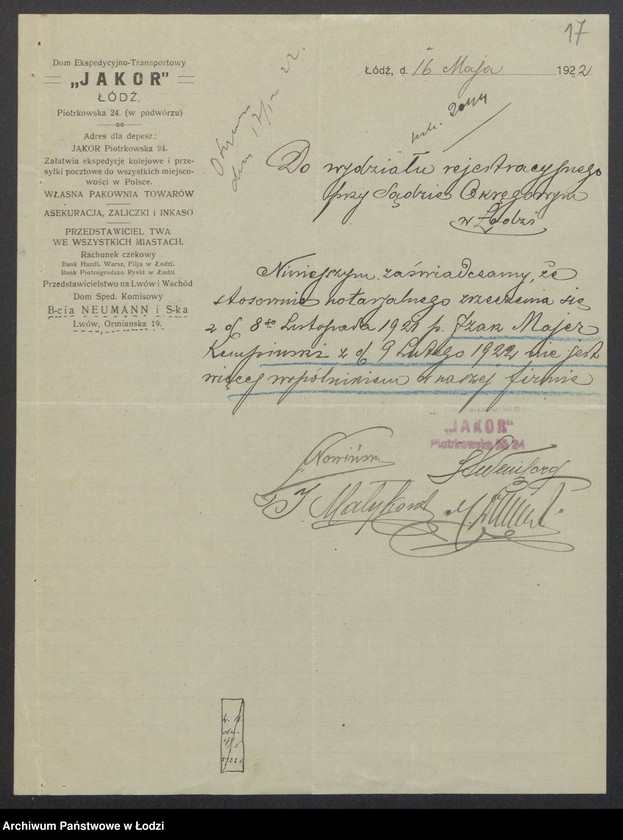 17
Dom Ekspedycyjno-Transportowy
„JAKOR"
ŁÓDŹ,
Piotrkowska 24. (w podwórzu)
Adres dla depesz:
JAKOR Piotrkowska 24.
Załatwia ekspedycje kolejowe i prze-
syłki pocztowe do wszystkich miejsco-
wości w Polsce.
WŁASNA PAKOWNIA TOWARÓW
ASEKURACJA, ZALICZKI i INKASO
PRZEDSTAWICIEL TWA
WE WSZYSTKICH MIASTACH.
Rachunek czekowy
Bank Handl. Warsz. Filja w Łodzi.
Bank Piotrogrodzko Ryski w Łodzi
Przedstawicielstwo na Lwów i Wschód
Dom Sped. Komisowy
B-cia NEUMANN i S-ka
Lwów, Ormianska 19.
Łódź, d. 16 Maja 1922
Do wydziału rejestracyjnego
przy Sądzie Okręgowym
w Łodzi
Niniejszym zaświadczamy, że
stosownie notarjalnego zrzeczenia się
z d/ 8go Listopada 1921 r. Izak Majer
Kempiński z d/ 9 Lutego 1922 nie jest
więcej wspólnikiem w naszej firmie
„JAKOR"
Piotrkowska № 24
Archiwum Państwowe w Łodzi